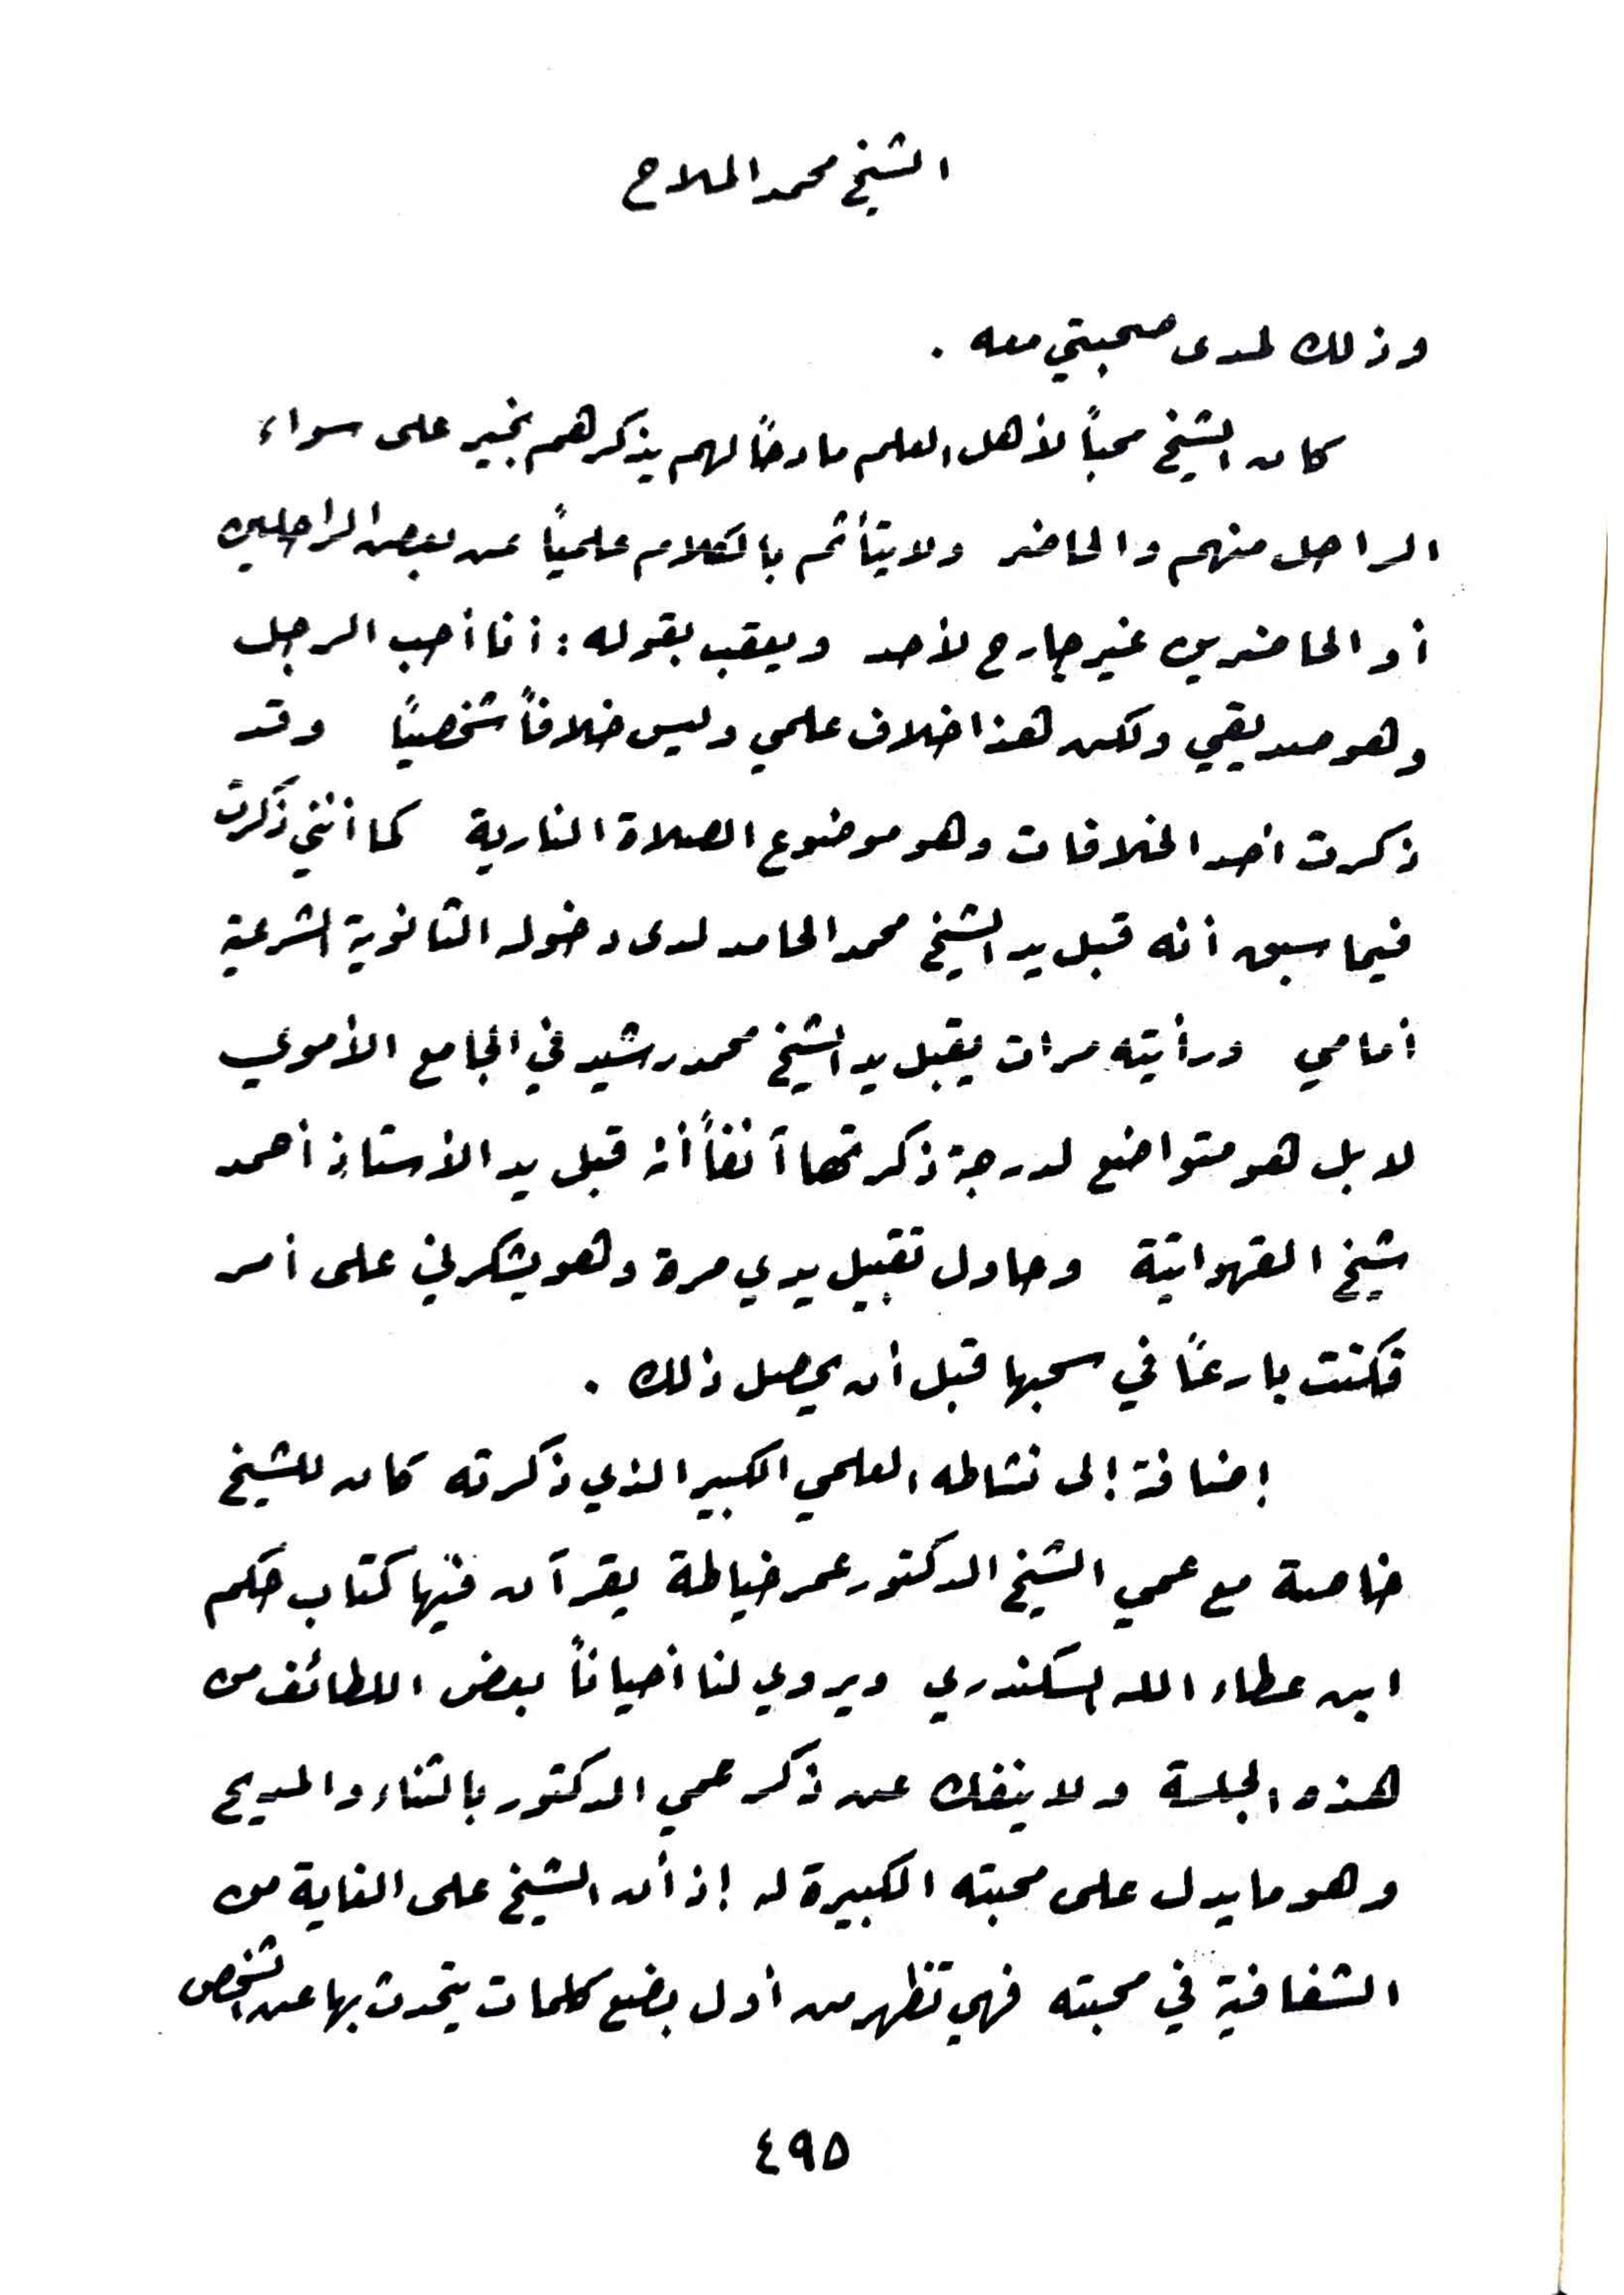 الشيخ محمد الملاح
وذلك لمدى صحبتي معه .
كان الشيخ محباً لأهل العلم مادحاً لهم يذكرهم بخير على سواء
الراحل منهم والحاضر ولا يتأثم بالكلام علمياً عن بعض الراحلين
أو الحاضرين غير جارح لأحد ويعقب بقوله : أنا أحب الرجل
وهو صديقي ولكن هذا خلاف علمي وليس خلافاً شخصياً وقد
ذكرت احد الخلافات وهو موضوع الصلاة النارية كما أنني ذكرت
فيما سبق أنه قبل يد الشيخ محمد الحامد لدى دخوله الثانوية الشرعية
أمامي ورأيته مرات يقبل يد الشيخ محمد رشيد في الجامع الأموي
لا بل هو متواضع لدرجة ذكرتها آنفاً أنه قبل يد الأستاذ أحمد
شيخ القهواتية وحاول تقبيل يدي مرة وهو يشكرني على أمر
فكنت بارعاً في سحبها قبل أن يحصل ذلك .
إضافة إلى نشاطه العلمي الكبير الذي ذكرته كان للشيخ
خاصة مع عمي الشيخ الدكتور عمر خياطة يقرآن فيها كتاب حكم
ابن عطاء الله السكندري ويروي لنا أحياناً بعض اللطائف من
هذه الجلسة ولا ينفك عن ذكر عمي الدكتور بالثناء والمديح
وهو ما يدل على محبته الكبيرة له إذ أن الشيخ على الغاية من
الشفافية في محبته فهي تظهر من أول بضع كلمات يتحدث بها عن الشخص
٤٩٥